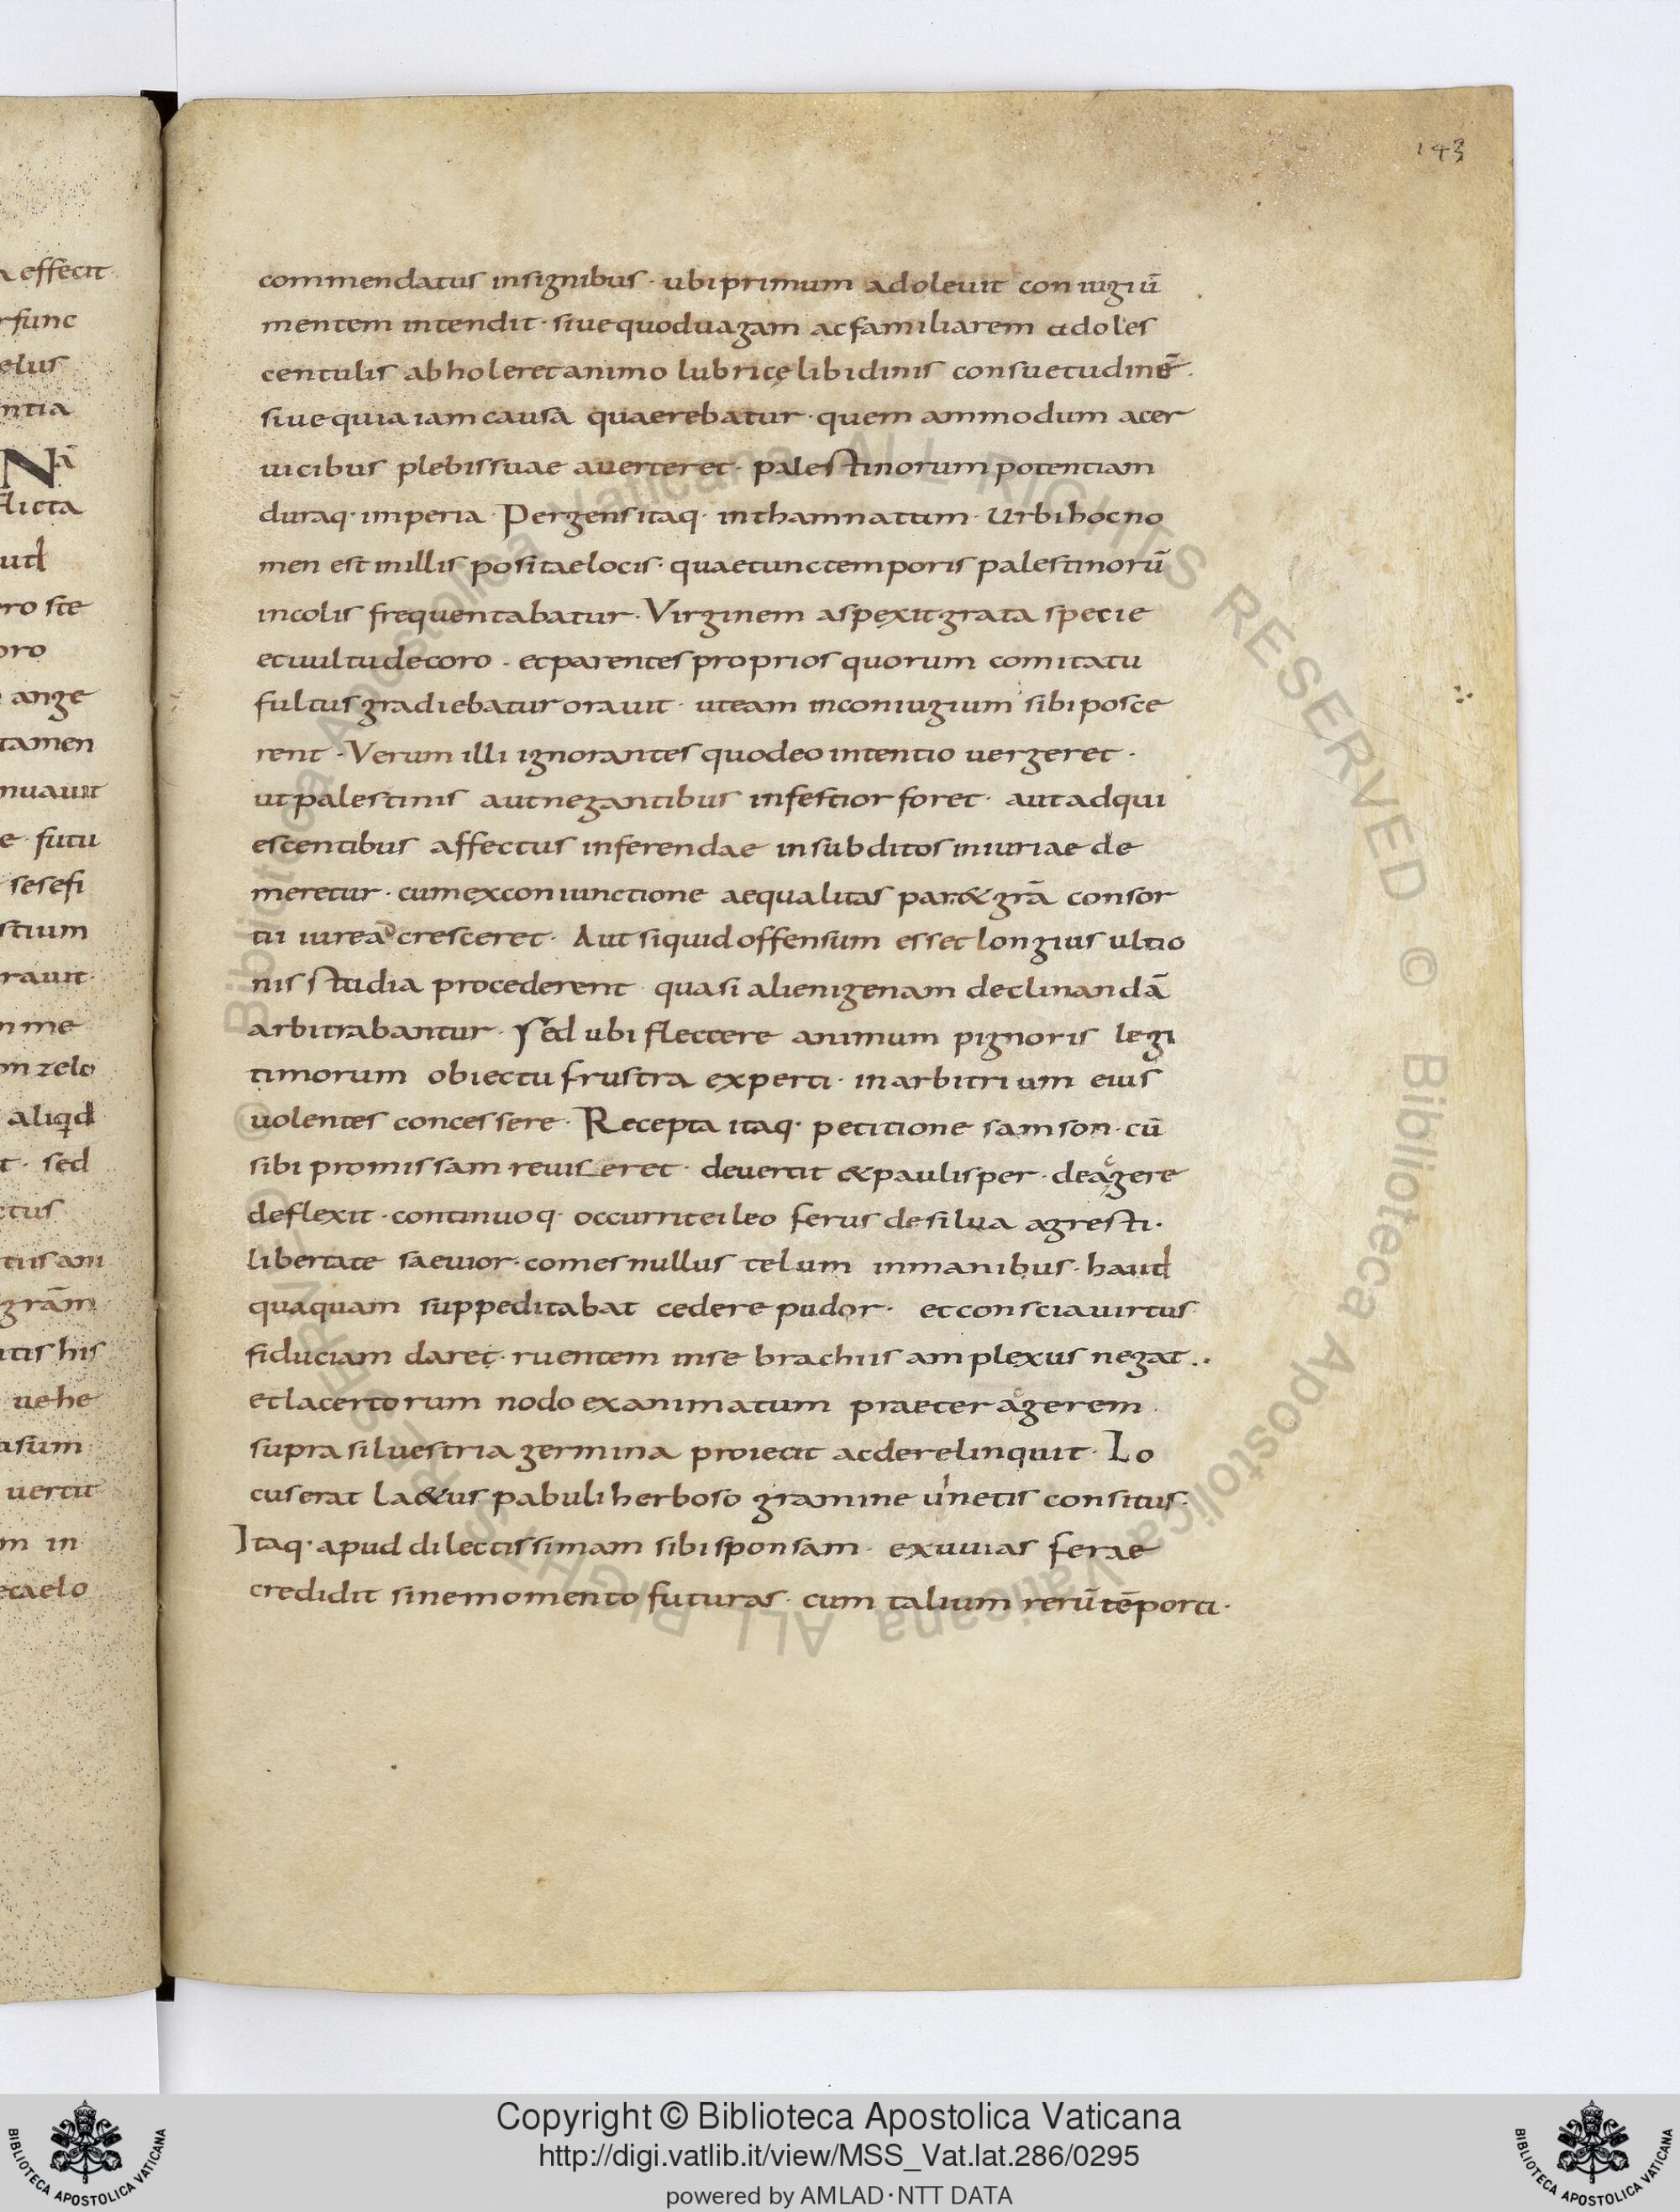 143
a effecit
rfunc
elus
ntia
Nā
flicta
utd
ro ste
oro
ange
tamen
nuauit
e · futu
sesefi
stium
rauit·
nme
om zelo
aliqd
t · sed
ctus
tiis ani
grām
itis his
uehe
asum
uertit
m in
ecaelo
commendatus insignibus · ubi primum adoleuit coniugiū
mentem intendit · siue quod uagam ac familiarem adoles
centulis abholeret animo lubricę libidinis consuetudinē ·
siue quia iam causa quaerebatur · quem ammodum a cer
uicibus plebis suae auerteret · palestinorum potentiam
duraq· imperia · Pergens itaq· in thamnatam · urbi hoc no
men est in illis positae locis · quae tunc temporis palestinorū
incolis frequentabatur · Virginem aspexit grata specie
et uultu decoro · et parentes proprios quorum comitatu
fultus gradiebatur orauit · ut eam in coniugium sibi posce
rent · Verum illi ignorantes quod eo intentio uergeret ·
ut palestinis aut negantibus infestior foret · aut adqui
escentibus affectus inferendae in subditos iniuriae de
meretur · cum ex coniunctione aequalitas par & grā consor
tii iure adcresceret · Aut si quid offensum esset longius ultio
nis studia procederent quasi alienigenam declinandā
arbitrabantur · Sed ubi flectere animum pignoris legi
timorum obiectu frustra experti · in arbitrium eius
uolentes concessere · Recepta itaq· petitione samson · cū
sibi promissam reuiseret · deuertit & paulisper · de agere
deflexit · continuoq· occurrit ei leo ferus de silua agresti ·
libertate saeuior · comes nullus telum in manibus · haud
quaquam suppeditabat cedere pudor · et conscia uirtus
fiduciam daret · ruentem in se brachiis amplexus negat ··
et lacertorum nodo exanimatum praeter agerem
supra siluestria germina proiecit ac derelinquit · Lo
cus erat la&us pabuli herboso gramine uinetis consitus ·
Itaq· apud dilectissimam sibi sponsam · exuuias ferae
credidit sine momento futuras · cum talium rerū tēporti ·
© Biblioteca Apostolica Vaticana ALL RIGHTS RESERVED © Biblioteca Apostolica Vaticana ALL RIGHTS RESERVED
Copyright © Biblioteca Apostolica Vaticana
http://digi.vatlib.it/view/MSS_Vat.lat.286/0295
powered by AMLAD·NTT DATA
BIBLIOTECA APOSTOLICA VATICANA
BIBLIOTECA APOSTOLICA VATICANA